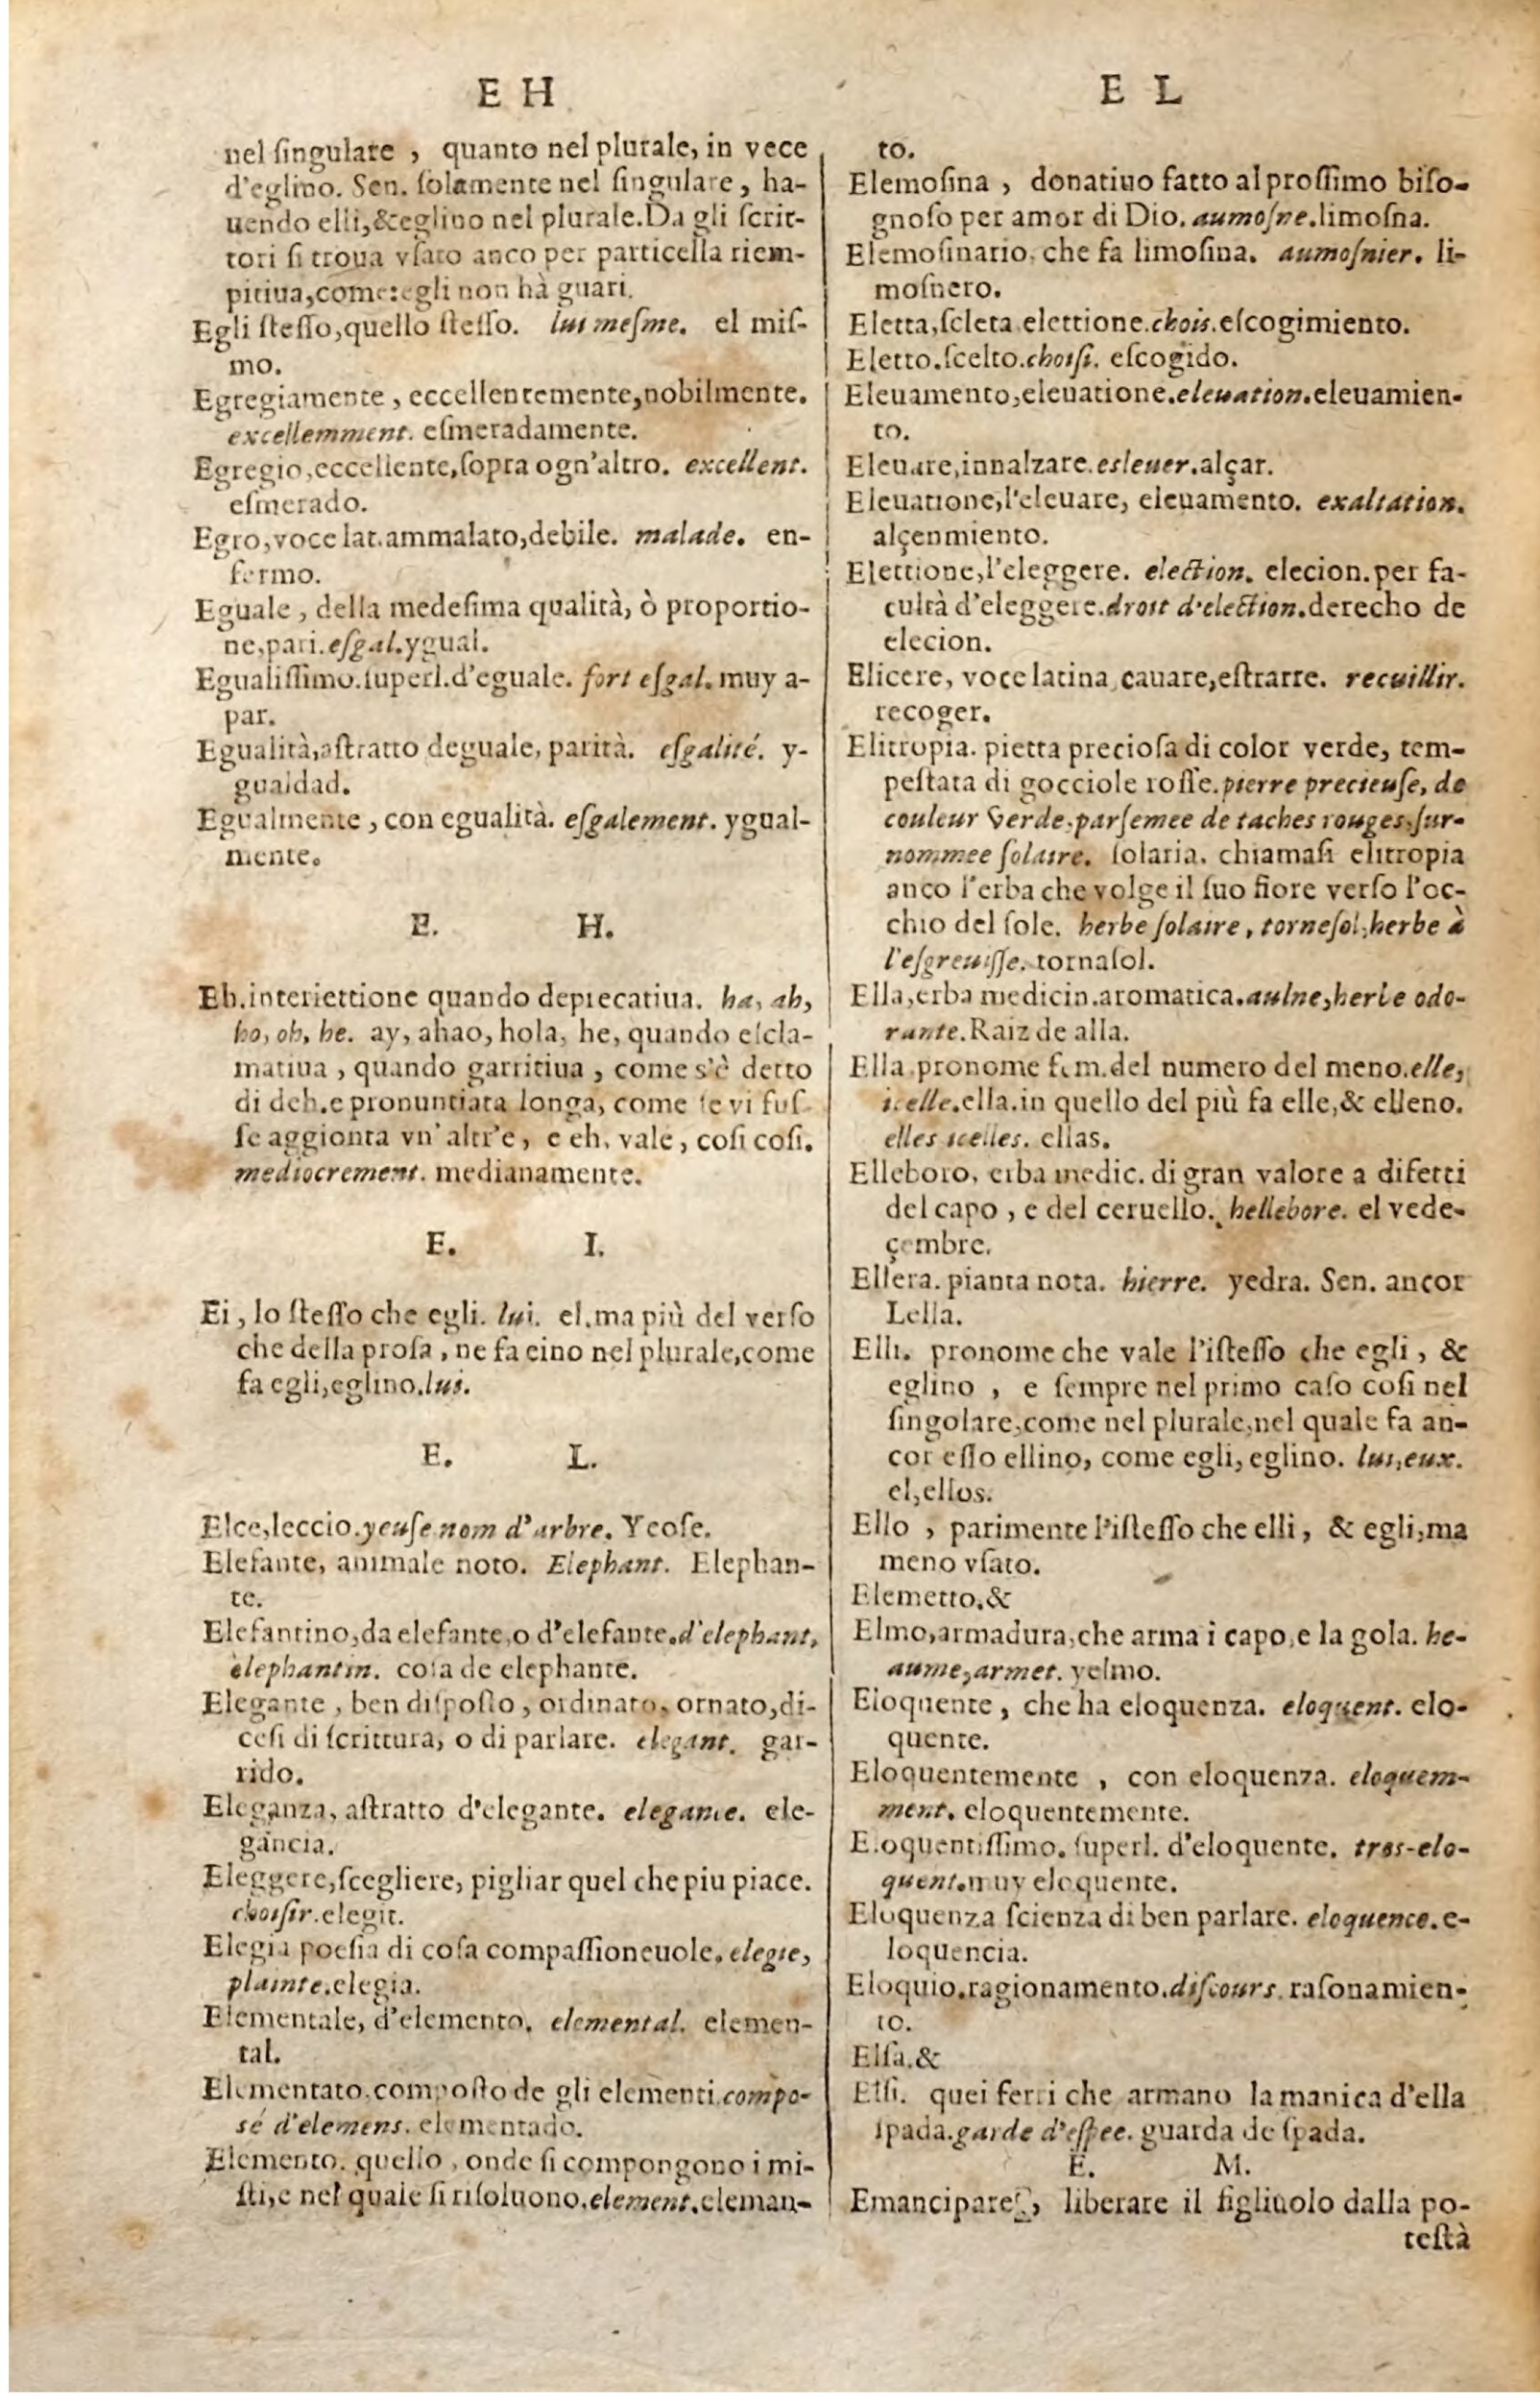 E H
nel ſingulare , quanto nel plurale, in vece
d'eglino. Sen. ſolamente nel ſingulare, ha-
uendo elli,&eglino nel plurale.Da gli ſcrit-
tori ſi troua vſato anco per particella riem-
pitiua,come:egli non hà guari.
Egli ſteſſo,quello ſteſſo. lui meſme. el miſ-
mo.
Egregiamente , eccellentemente,nobilmente.
excellemment. eſmeradamente.
Egregio,eccellente,ſopra ogn'altro. excellent.
eſmerado.
Egro,voce lat.ammalato,debile. malade. en-
fermo.
Eguale , della medeſima qualità, ò proportio-
ne,pari.eſgal.ygual.
Egualiſſimo.ſuperl.d'eguale. fort eſgal. muy a-
par.
Egualità,aſtratto deguale, parità. eſgalité. y-
gualdad.
Egualmente , con egualità. eſgalement. ygual-
mente.
E. H.
Eh.interiettione quando deprecatiua. ha, ah,
ho, oh, he. ay, ahao, hola, he, quando eſcla-
matiua , quando garritiua , come s'è detto
di deh.e pronuntiata longa, come ſe vi fuſ-
ſe aggionta vn' altr'e, e eh, vale, coſi coſi.
mediocrement. medianamente.
E. I.
Ei , lo ſteſſo che egli. lui. el.ma più del verſo
che della proſa , ne fa eino nel plurale,come
fa egli,eglino.lui.
E. L.
Elce,leccio.yeuſe nom d'arbre. Ycoſe.
Elefante, animale noto. Elephant. Elephan-
te.
Elefantino,da elefante,o d'elefante.d'elephant,
elephantin. coſa de elephante.
Elegante , ben diſpoſto , ordinato, ornato,di-
ceſi di ſcrittura, o di parlare. elegant. gar-
rido.
Eleganza, aſtratto d'elegante. elegance. ele-
gancia.
Eleggere,ſcegliere, pigliar quel che piu piace.
choiſir.elegir.
Elegia poeſia di coſa compaſſioneuole.elegie,
plainte.elegia.
Elementale, d'elemento. elemental. elemen-
tal.
Elementato.compoſto de gli elementi.compo-
sé d'elemens. elementado.
Elemento. quello , onde ſi compongono i mi-
ſti,e nel quale ſi riſoluono.element.eleman-
E L
to.
Elemoſina , donatiuo fatto al proſſimo biſo-
gnoſo per amor di Dio.aumoſne.limoſna.
Elemoſinario, che fa limoſina. aumoſnier. li-
moſnero.
Eletta,ſcleta elettione.chois.eſcogimiento.
Eletto.ſcelto.choiſi. eſcogido.
Eleuamento,eleuatione.eleuation.eleuamien-
to.
Eleuare,innalzare.esleuer.alçar.
Eleuatione,l'eleuare, eleuamento. exaltation.
alçenmiento.
Elettione,l'eleggere. election. elecion.per fa-
cultà d'eleggere.droit d'election.derecho de
elecion.
Elicere, voce latina,cauare,eſtrarre. recuillir.
recoger.
Elitropia. pietta precioſa di color verde, tem-
peſtata di gocciole roſſe.pierre precieuſe, de
couleur verde,parſemee de taches rouges,ſur-
nommee ſolaire. ſolaria. chiamaſi elitropia
anco l'erba che volge il ſuo fiore verſo l'oc-
chio del ſole. herbe ſolaire , torneſol,herbe à
l'eſgreuiſſe. tornaſol.
Ella,erba medicin.aromatica.aulne,herbe odo-
rante.Raiz de alla.
Ella.pronome fem.del numero del meno.elle,
icelle.ella.in quello del più fa elle,& elleno.
elles icelles. ellas.
Elleboro, erba medic. di gran valore a difetti
del capo , e del ceruello. hellebore. el vede-
çembre.
Ellera. pianta nota. hierre. yedra. Sen. ancor
Lella.
Elli. pronome che vale l'iſteſſo che egli , &
eglino , e ſempre nel primo caſo coſi nel
ſingolare,come nel plurale,nel quale fa an-
cor eſſo ellino, come egli, eglino. lui,eux.
el,ellos.
Ello , parimente l'iſteſſo che elli, & egli,ma
meno vſato.
Elemetto.&
Elmo,armadura,che arma i capo,e la gola. he-
aume,armet. yelmo.
Eloquente , che ha eloquenza. eloquent. elo-
quente.
Eloquentemente , con eloquenza. eloquem-
ment. eloquentemente.
Eloquentiſſimo. ſuperl. d'eloquente. tres-elo-
quent.muy eloquente.
Eloquenza ſcienza di ben parlare. eloquence.e-
loquencia.
Eloquio.ragionamento.diſcours.raſonamien-
to.
Elſa.&
Elſi. quei ferri che armano la manica d'ella
ſpada.garde d'eſpee. guarda de ſpada.
E. M.
Emancipare, liberare il figliuolo dalla po-
teſtà